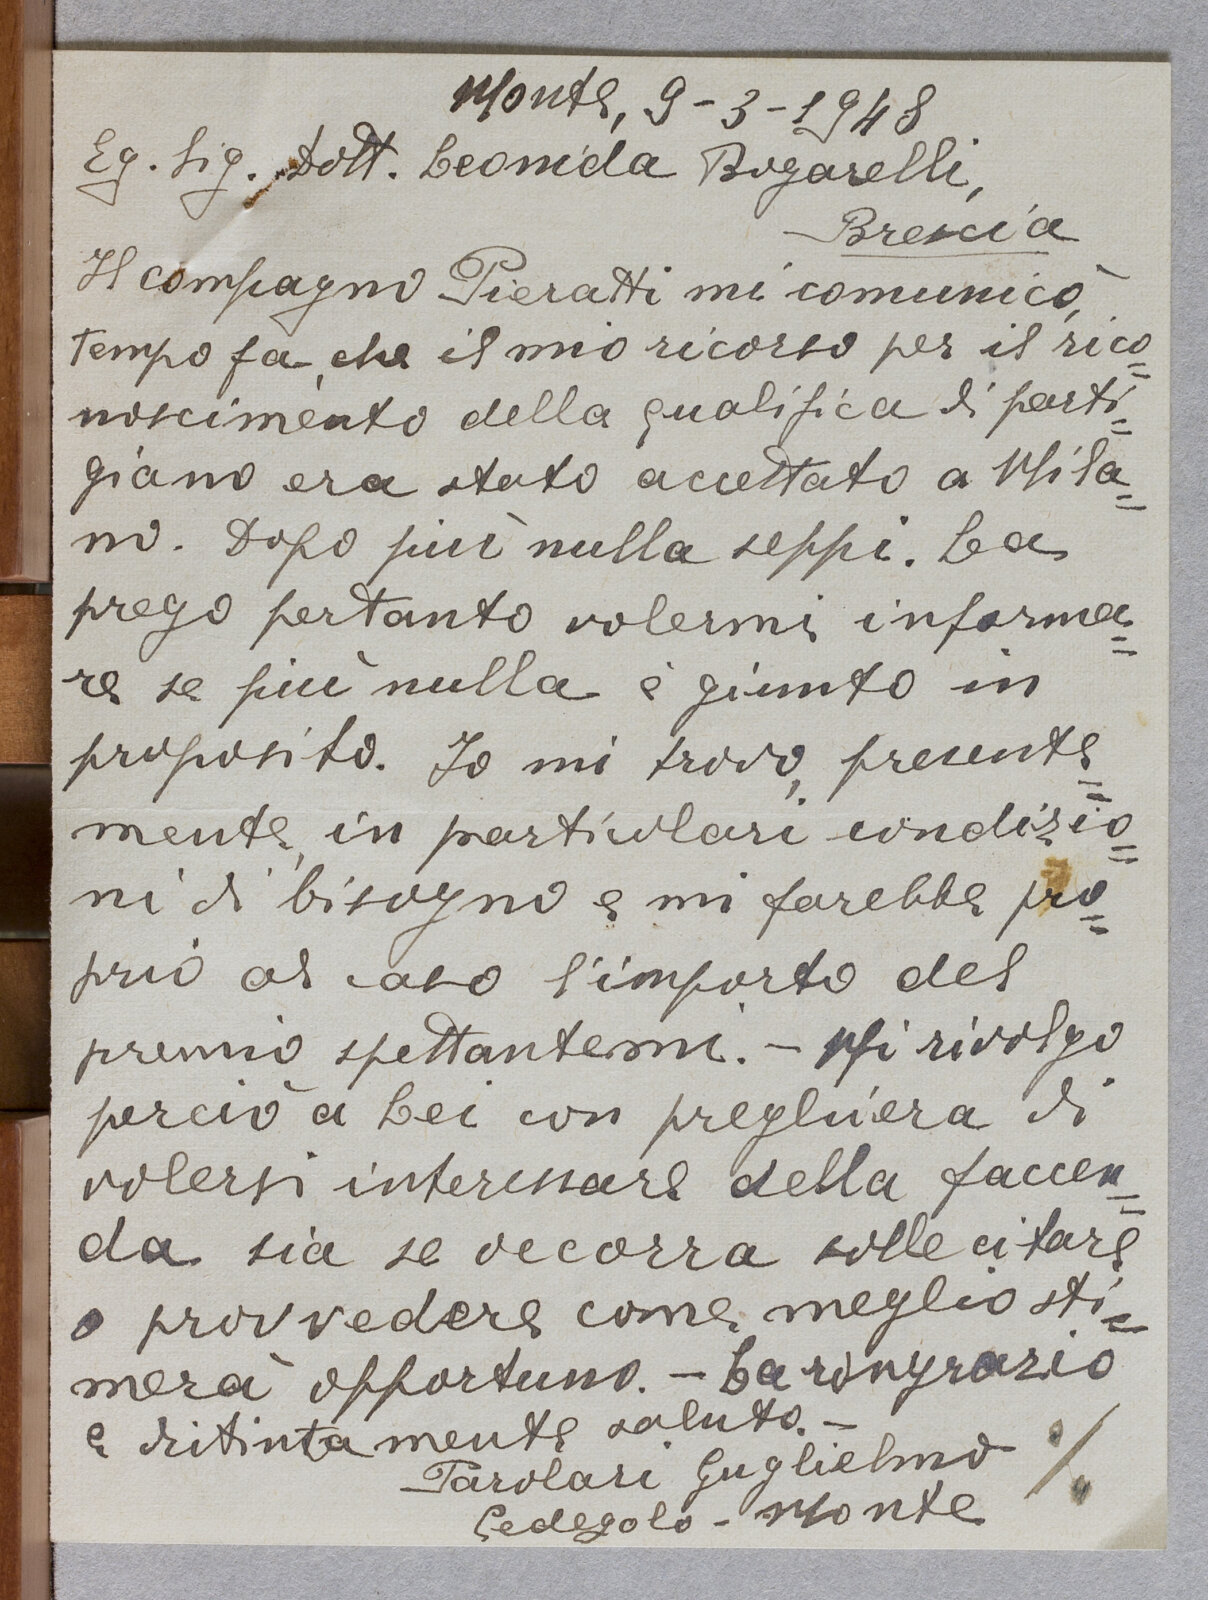 Monte, 9-3-1948
Eg. Sig. Dott. Leonida Bogarelli,
Brescia
Il compagno Pieratti mi comunicò,
tempo fa, che il mio ricorso per il rico=
noscimento della qualifica di parti=
giano era stato accettato a Mila=
no. Dopo più nulla seppi. La
prego pertanto volermi informa=
re se più nulla è giunto in
proposito. Io mi trovo, presente=
mente, in particolari condizio=
ni di bisogno e mi farebbe pro=
prio al caso l'importo del
premio spettantemi. - Mi rivolgo
perciò a Lei con preghiera di
volersi interessare della faccen=
da sia se occorra sollecitare
o provvedere come meglio sti=
merà opportuno. - La ringrazio
e ditintamente saluto. -
Parolari Guglielmo
Cedegolo - Monte